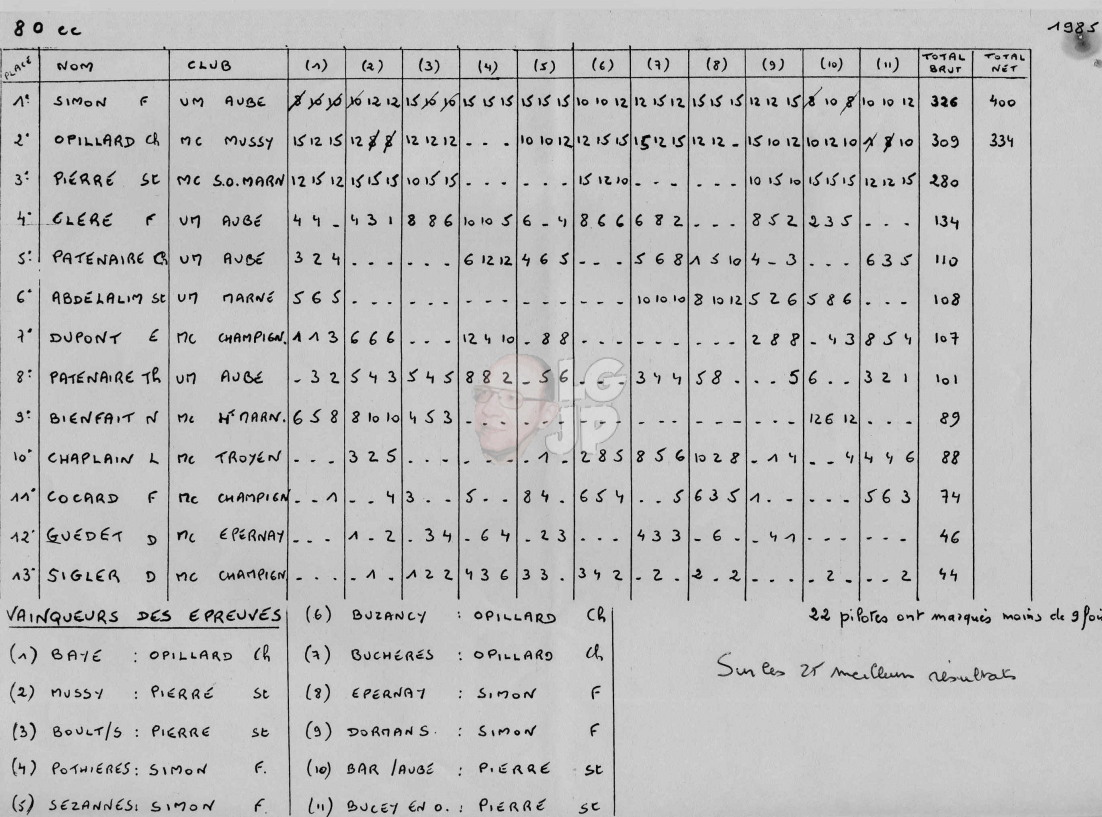 80 cc 1985
PLACE NOM CLUB (1) (2) (3) (4) (5) (6) (7) (8) (9) (10) (11) TOTAL BRUT TOTAL NET
1° SIMON F UM AUBE 8 10 10 10 12 12 15 10 10 15 15 15 15 15 15 10 10 12 12 15 12 15 15 15 12 12 15 8 10 8 10 10 12 326 400
2° OPILLARD Ch MC MUSSY 15 12 15 12 8 8 12 12 12 - - - 10 10 12 12 15 15 15 12 15 12 12 - 15 10 12 10 12 10 1 8 10 309 334
3° PIERRE St MC S.O.MARN 12 15 12 15 15 15 10 15 15 - - - - - - 15 12 10 - - - - - - 10 15 10 15 15 15 12 12 15 280
4° CLERE F UM AUBE 4 4 - 4 3 1 8 8 6 10 10 5 6 - 4 8 6 6 6 8 2 8 5 2 2 3 5 - - - 134
5° PATENAIRE Ch UM AUBE 3 2 4 - - - - - - 6 12 12 4 6 5 - - - 5 6 8 1 5 10 4 - 3 - - - 6 3 5 110
6° ABDELALIM St UM MARNE 5 6 5 - - - - - - - - - - - - - - - 10 10 10 8 10 12 5 2 6 5 8 6 - - - 108
7° DUPONT E MC CHAMPIGN. 1 1 3 6 6 6 - - - 12 4 10 - 8 8 - - - - - - - - - 2 8 8 - 4 3 8 5 4 107
8° PATENAIRE Th UM AUBE - 3 2 5 4 3 5 4 5 8 8 2 - 5 6 - - - 3 4 4 5 8 - - - 5 6 - - 3 2 1 101
9° BIENFAIT N MC Hte MARN. 6 5 8 8 10 10 4 5 3 - - - - - - - - - - - - - - - - - - 12 6 12 - - - 89
10° CHAPLAIN L MC TROYEN - - - 3 2 5 - - - - - - - 1 - 2 8 5 8 5 6 10 2 8 - 1 4 - - 4 4 4 6 88
11° COCARD F MC CHAMPIGN - - 1 - - 4 3 - - 5 - - 8 4 - 6 5 4 - - 5 6 3 5 1 - - - - - 5 6 3 74
12° GUEDET D MC EPERNAY - - - 1 - 2 - 3 4 - 6 4 - 2 3 - - - 4 3 3 - 6 - - 4 1 - - - - - - 46
13° SIGLER D MC CHAMPIGN - - - - 1 - 1 2 2 4 3 6 3 3 - 3 4 2 - 2 - 2 - 2 - - - - 2 - - - 2 44
VAINQUEURS DES EPREUVES
(1) BAYE : OPILLARD Ch
(2) MUSSY : PIERRE St
(3) BOULT/S : PIERRE St
(4) POTHIERES : SIMON F.
(5) SEZANNES : SIMON F.
(6) BUZANCY : OPILLARD Ch
(7) BUCHERES : OPILLARD Ch
(8) EPERNAY : SIMON F
(9) DORMANS. : SIMON F
(10) BAR /AUBE : PIERRE St
(11) BUCEY EN O. : PIERRE St
22 pilotes ont marqués moins de 9 foi
Sur les 25 meilleurs résultats
LG
JP